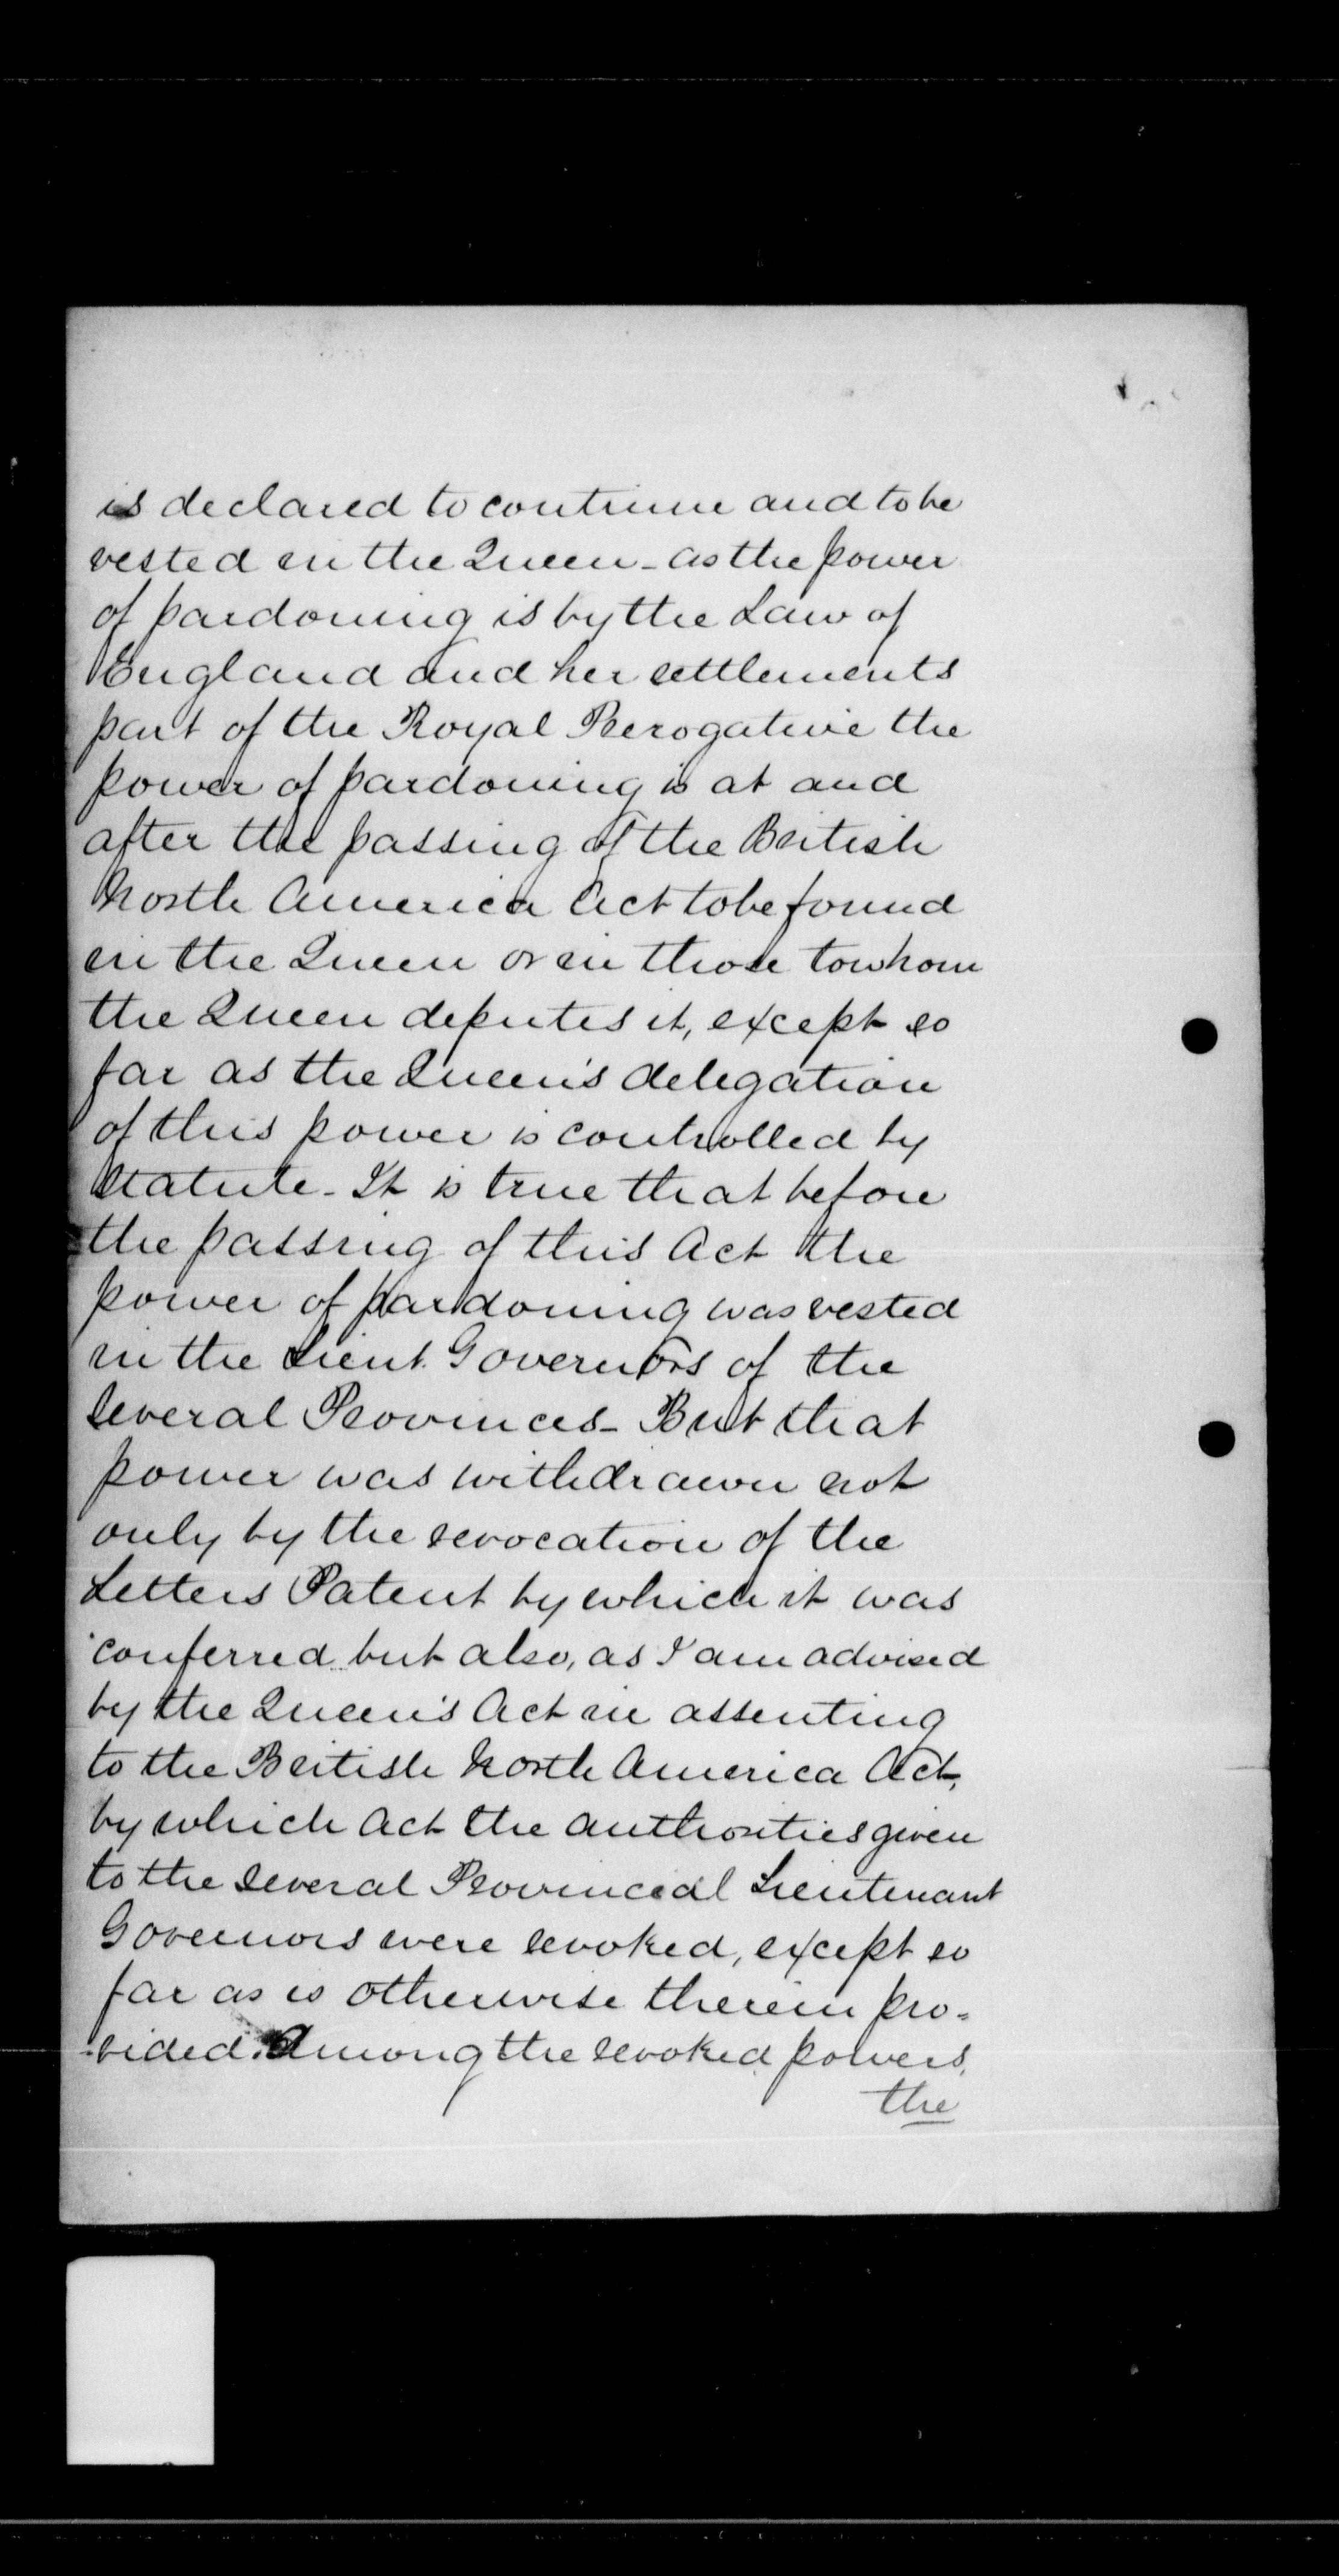 is declared to continue and to be
vested in the Queen - as the power
of pardoning is by the Law of
England and her settlements
part of the Royal Prerogative the
power of pardoning is at and
after the passing of the British
North America Act to be found
in the Queen or in those to whom
the Queen deputes it, except so
far as the Queen's delegation
of this power is controlled by
Statute - It is true that before
the passing of this Act the
power of pardoning was vested
in the Lieut. Governors of the
several Provinces - But that
power was withdrawn not
only by the revocation of the
Letters Patent by which it was
conferred but also, as I am advised
by the Queen's Act in assenting
to the British North America Act,
by which Act the authorities given
to the several Provincial Lieutenant
Governors were revoked, except so
far as is otherwise therein pro=
vided. Among the revoked powers,
the